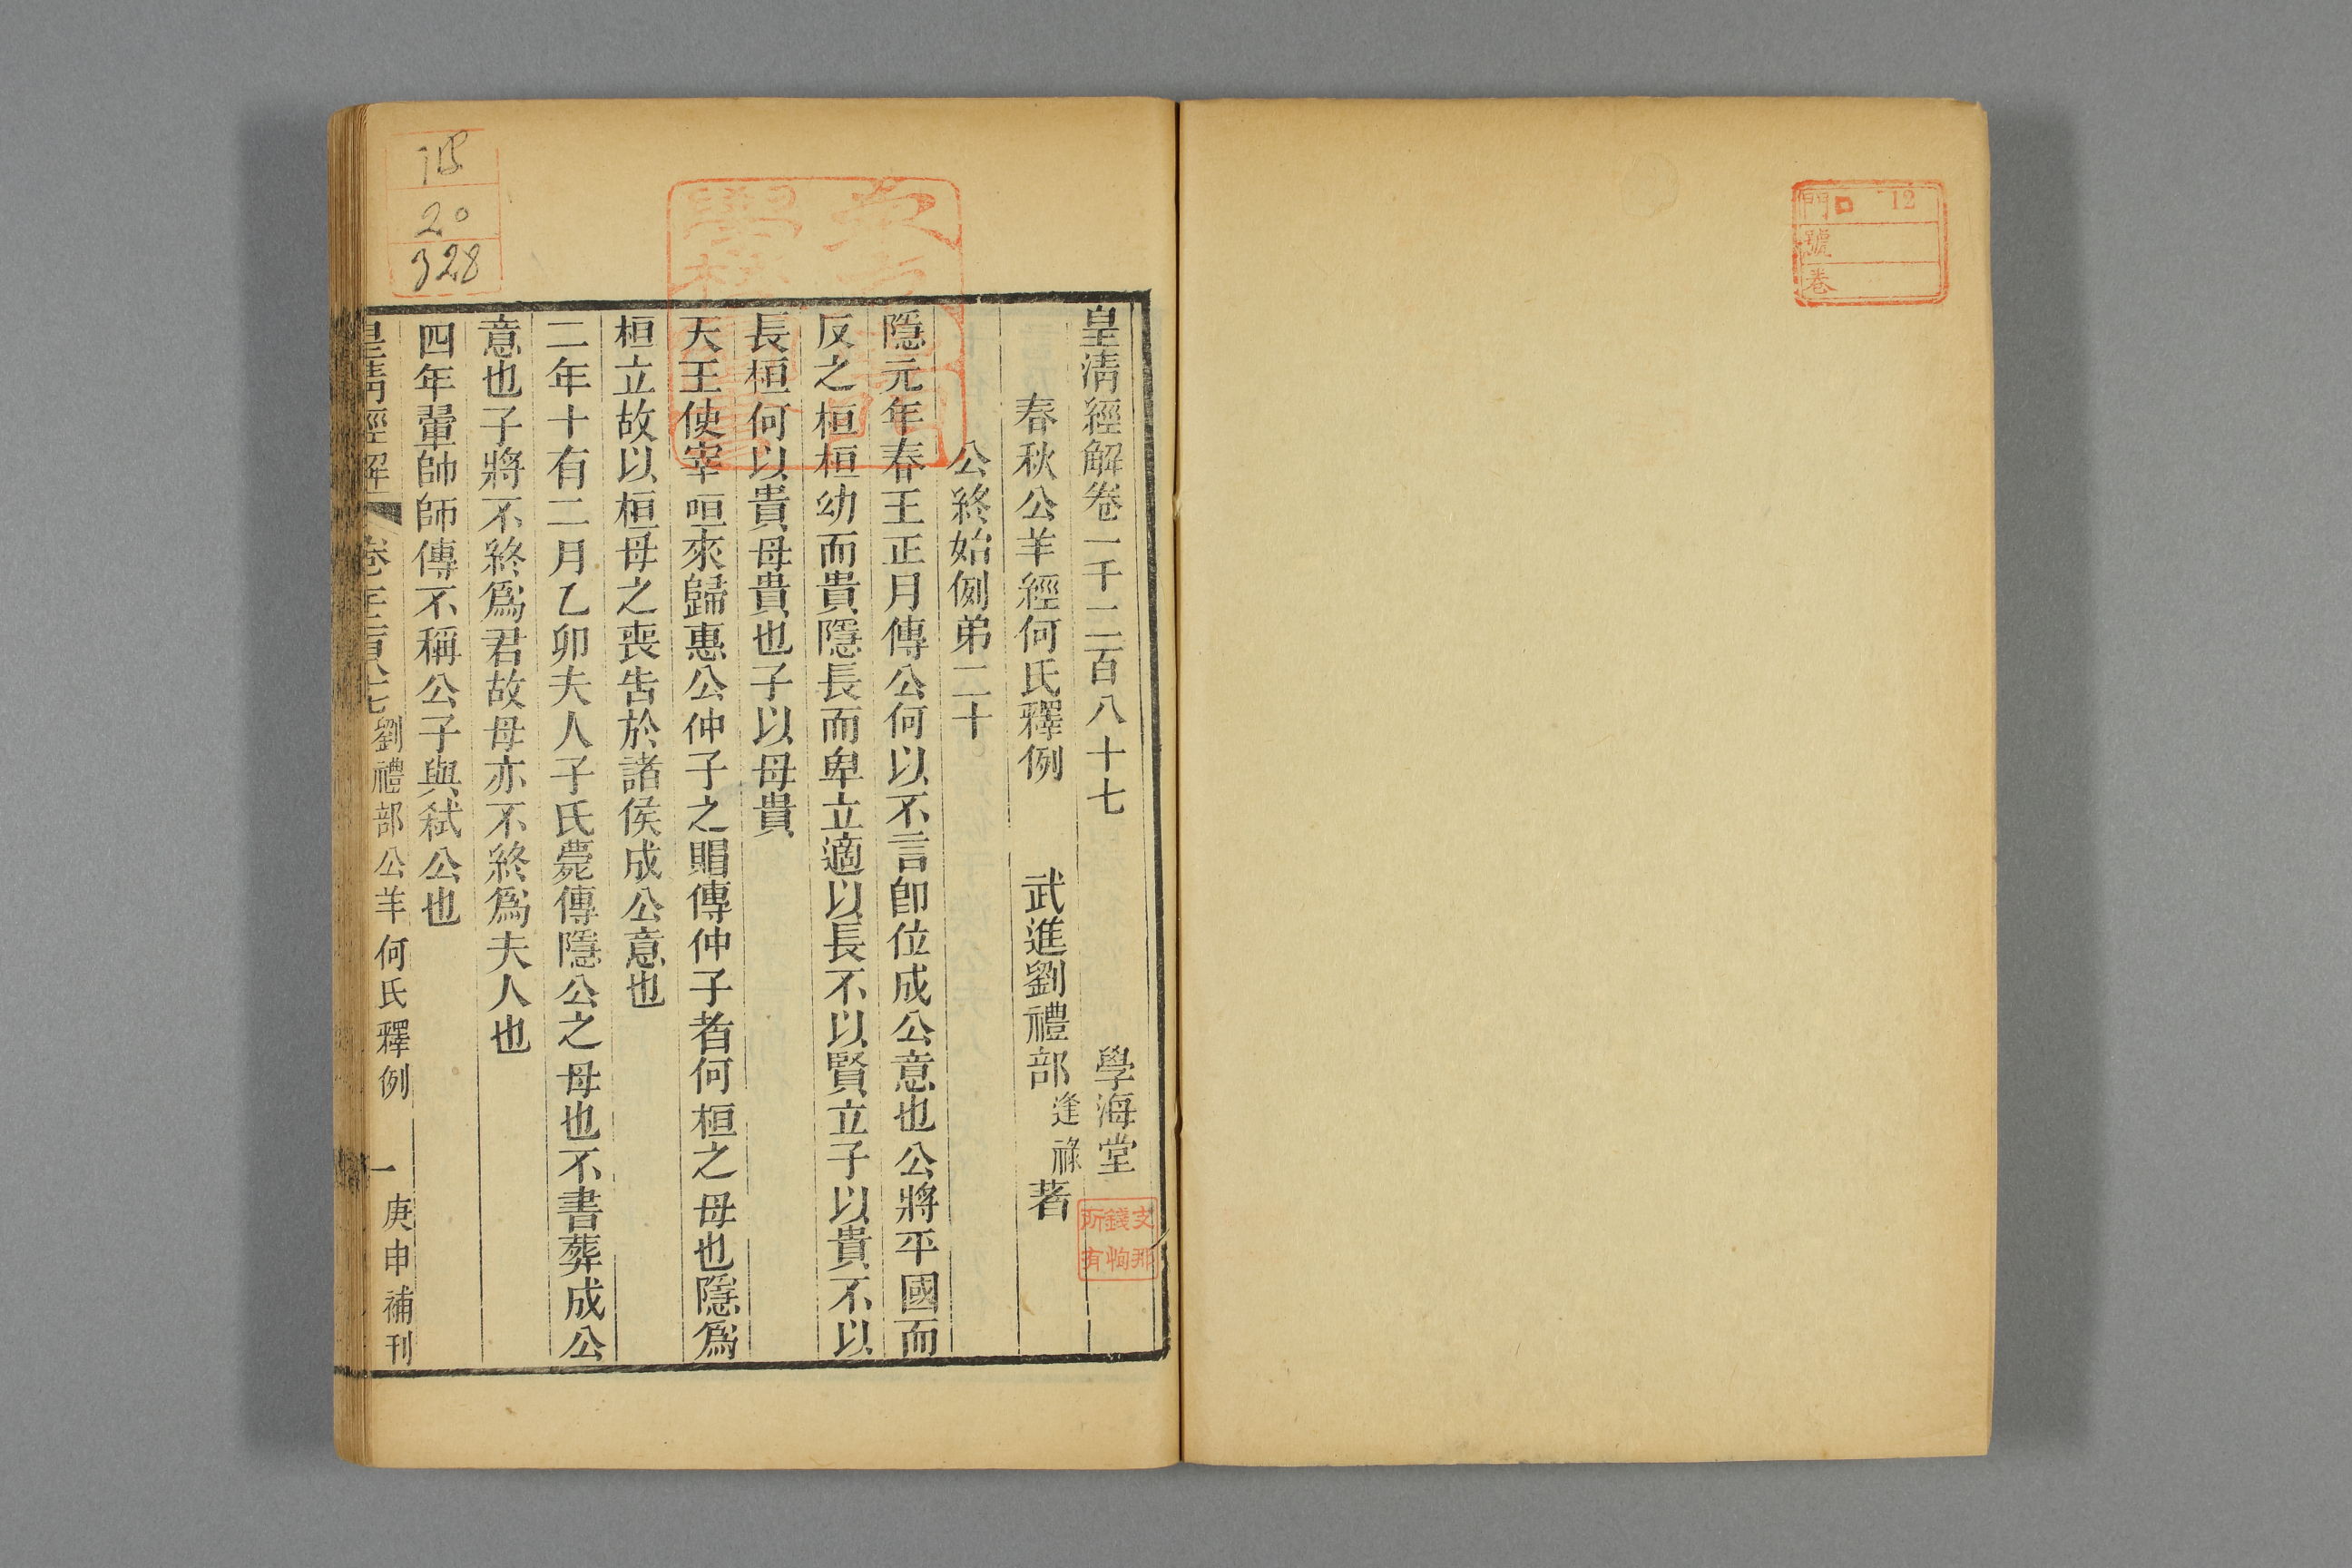 門 12
號
卷
皇清經解卷一千二百八十七 學海堂
春秋公羊經何氏釋例 武進劉禮部逢祿著
公終始例弟二十
隱元年春王正月傳公何以不言卽位成公意也公將平國而
反之桓桓幼而貴隱長而卑立適以長不以賢立子以貴不以
長桓何以貴母貴也子以母貴
天王使宰咺來歸惠公仲子之賵傳仲子者何桓之母也隱爲
桓立故以桓母之喪告於諸侯成公意也
二年十有二月乙卯夫人子氏薨傳隱公之母也不書葬成公
意也子將不終爲君故母亦不終爲夫人也
四年翬帥師傳不稱公子與弒公也
皇清經解 卷一千二百八十七 劉禮部公羊何氏釋例 一 庚申補刊
支那
錢恂
所有
20
328